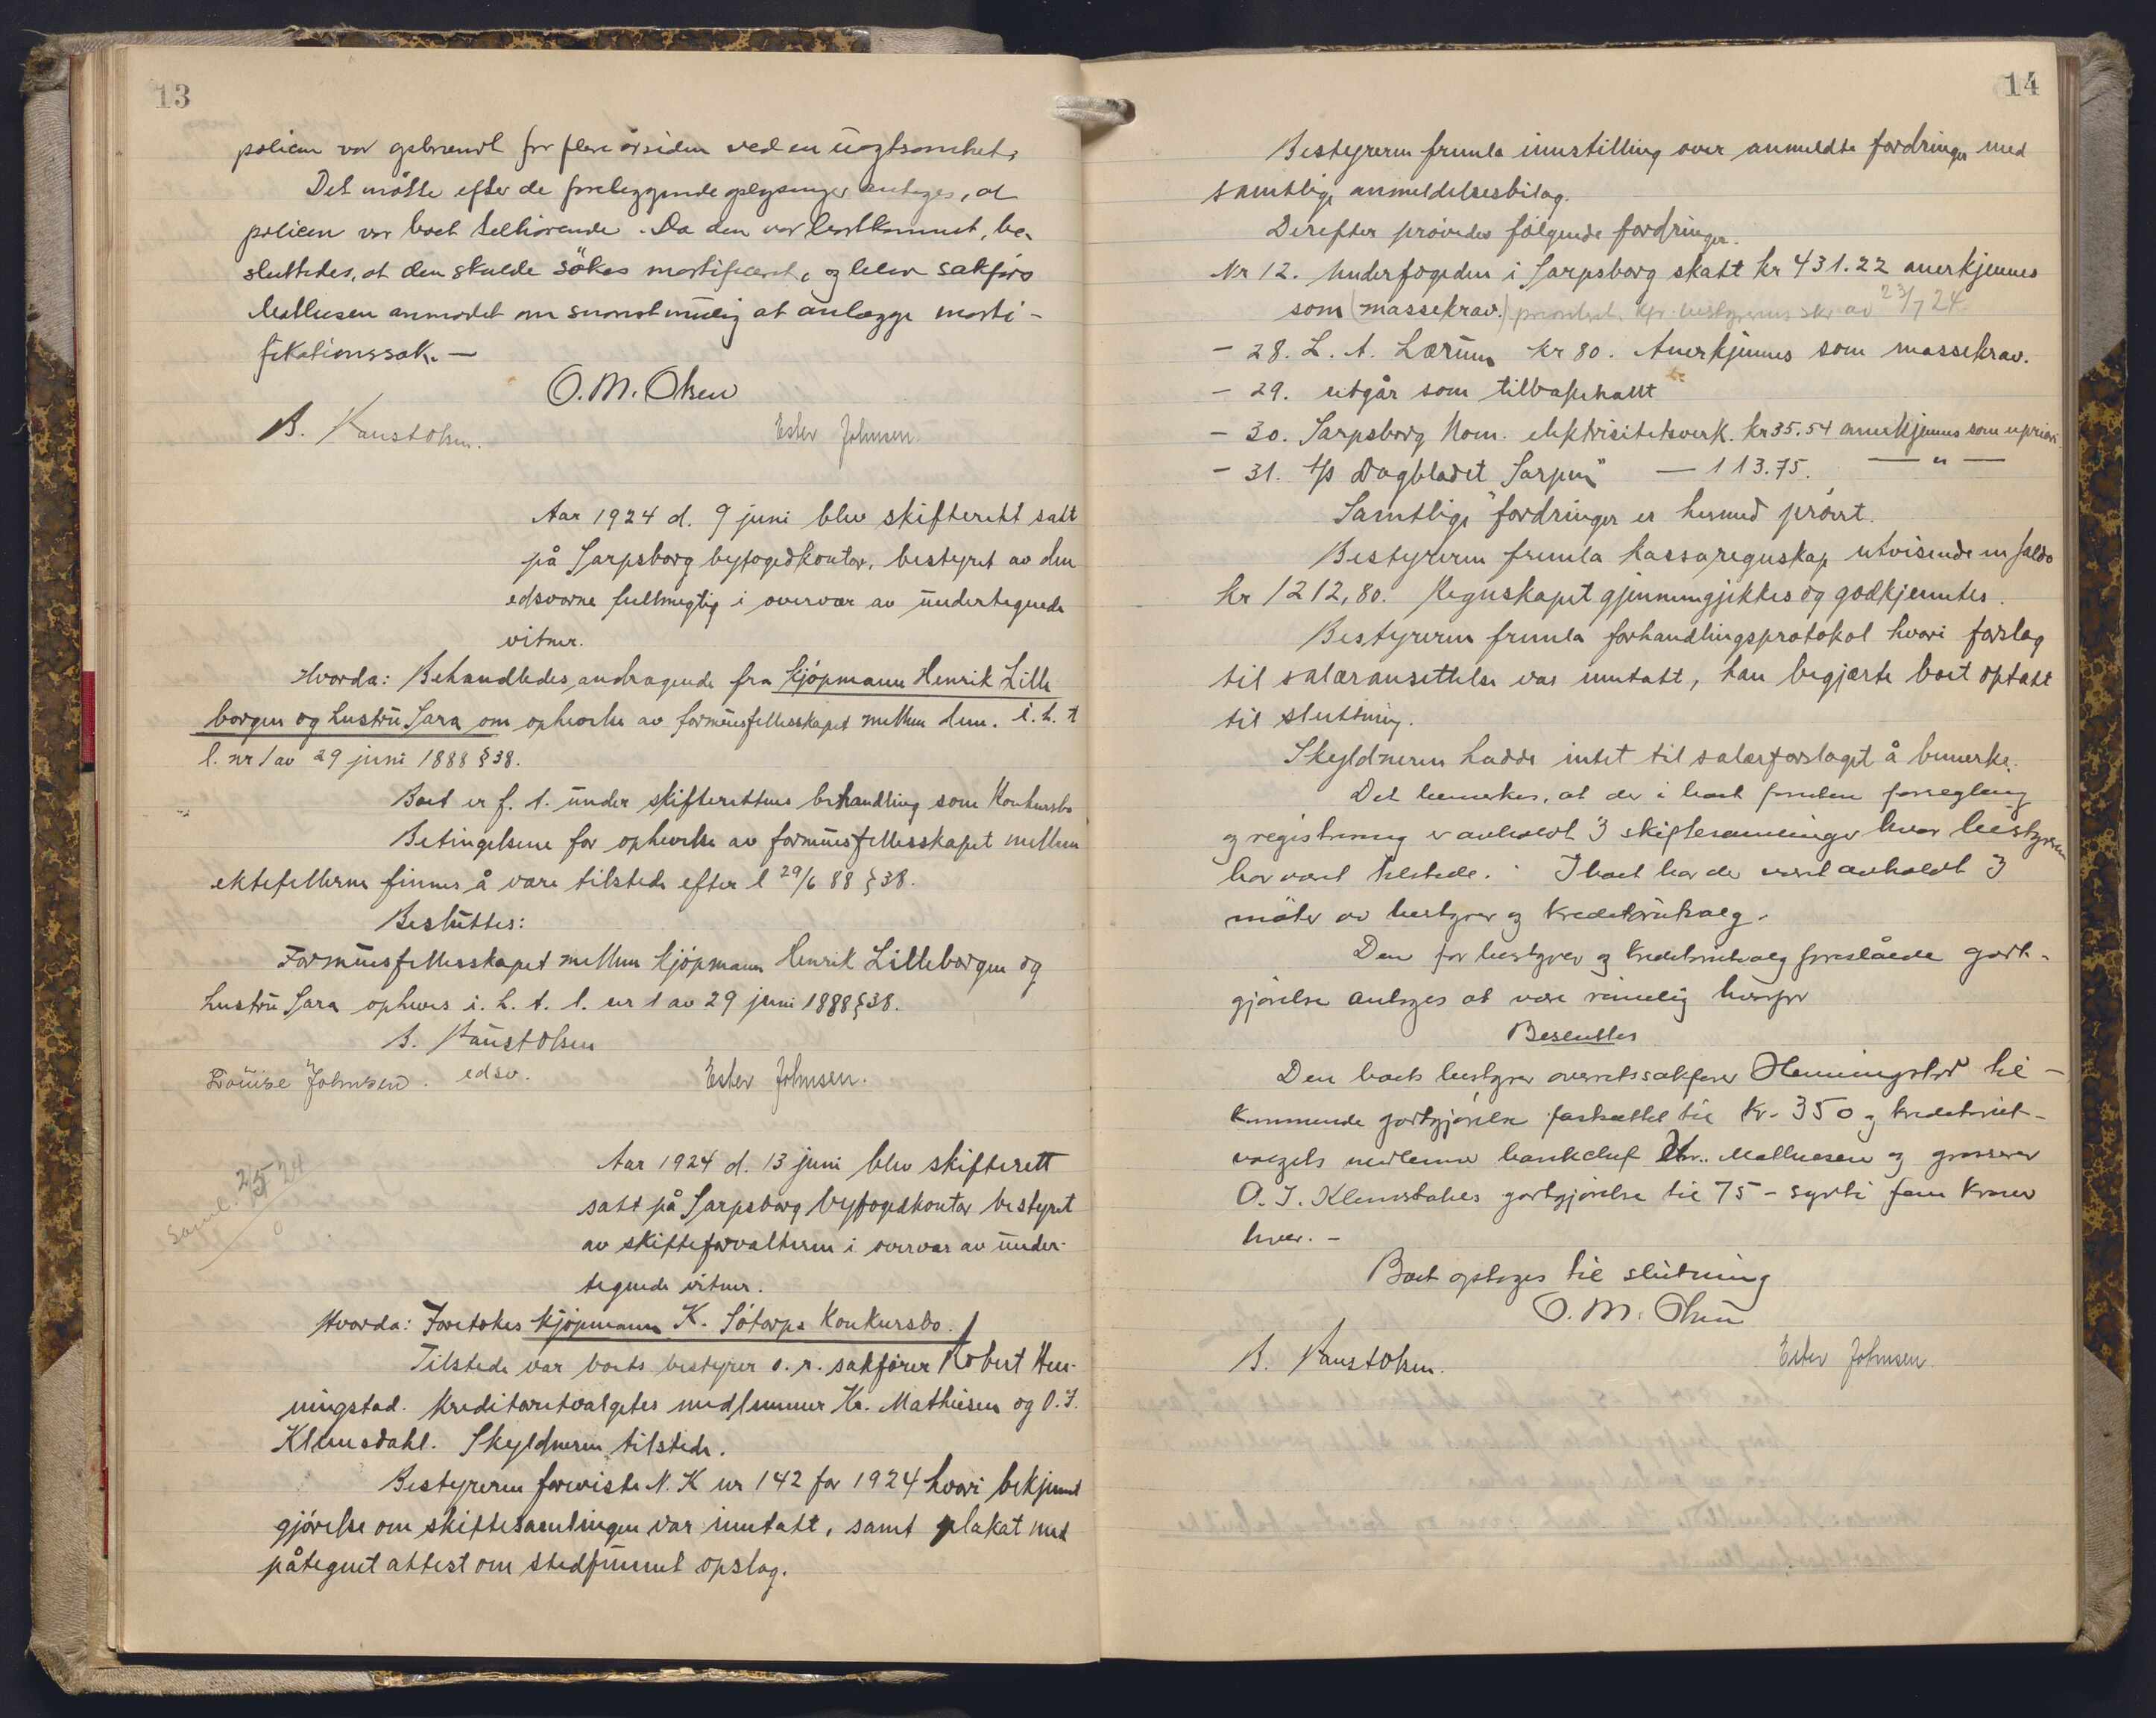 13
policen var gebrendt for flere årsiden ved en uagtsomhet.
Det måtte efter de foreliggende oplysninger antages, at
policen var boet tilhörende. Da den var bortkommet, be-
sluttedes, at den skulde sökes mortificeret, og blev sakförer
Mathiesen anmodet om snarest mulig at anlægge morti-
fikationssak. —
O. M. Olsen
B. Paust Olsen. Ester Johnsen.
Aar 1924 d. 9 juni blev skifterett satt
på Sarpsborg byfogedkontor, bestyret av den
edsvorne fullmegtig i overvær av undertegnede
vitner.
Hvorda: Behandledes andragende fra kjøpmann Henrik Lille
borgen og hustru Sara om ophevelse av formuesfellesskapet mellem dem. i. h. t
l. nr 1 av 29 juni 1888 § 38.
Boet er f. t. under skifterettens behandling som konkursbo
Betingelsene for ophevelse av formuesfellesskapet mellem
ektefellerne finnes å være tilstede efter l 29/6 88 § 38.
Besluttes:
Formuesfellesskapet mellem kjøpmann Henrik Lilleborgen og
hustru Sara opheves i. h. t. l. nr 1 av 29 juni 1888 § 38.
B. Paust Olsen
Louise Johnsen. edsv. Ester Johnsen.
Saml. 2/5 24
0
Aar 1924 d. 13 juni blev skifterett
satt på Sarpsborg byfogedkontor bestyret
av skifteforvalteren i overvær av under-
tegnede vitner.
Hvorda: Foretokes kjøpmann K. Søtorps Konkursbo.
Tilstede var boets bestyrer o. r. sakfører Robert Hen-
ningstad. Kreditorutvalgets medlemmer Kr. Mathiesen og O. J.
Klemsdahl. Skyldneren tilstede.
Bestyreren foreviste N. K nr 142 for 1924 hvori bekjent
gjørelse om skiftesamlingen var inntatt, samt plakat med
påtegnet attest om stedfunnet opslag.
14
Bestyreren fremla innstilling over anmeldte fordringer med
samtlige anmeldelsesbilag.
Derefter prøvedes følgende fordringer.
Nr 12. Underfogeden i Sarpsborg skatt kr 431.22 anerkjennes
som (massekrav.) prioritert. kfr. bestyrerens skr. av 23/7 24.
- 28. L. A. Lærum kr 80. Anerkjennes som massekrav.
- 29. utgår som tilbakekallt
- 30. Sarpsborg Kom. elektrisitetsverk. kr 35.54 anerkjennes som uprior.
- 31. A/S Dagbladet Sarpen" — 113.75. — " —
Samtlige fordringer er hermed prøvet.
Bestyreren fremla kassaregnskap utvisende en saldo
kr 1212,80. Regnskapet gjennemgikkes og godkjentes.
Bestyreren fremla forhandlingsprotokol hvori forslag
til salæransettelse var inntatt, han begjærte boet optatt
til slutning.
Skyldneren hadde intet til salærforslaget å bemerke.
Det bemerkes, at der i boet foruden forsegling
og registrering er avholdt 3 skiftesamlinger hvor bestyreren
har været tilstede. I boet har der været avholdt 3
møter av bestyrer og kreditorutvalg.
Den for bestyrer og kreditorutvalg foreslåede godt-
gjørelse antages at være rimelig hvorfor
Besluttes
Den boets bestyrer overretssakfører Henningstad til-
kommende godtgjørelse fastsættes til kr. 350 og kreditorut-
valgets medlemmer bankchef Chr. Mathiesen og grosserer
O. J. Klemsdahls godtgjørelse til 75 - sytti fem kroner
hver. -
Boet optages til slutning
O. M. Olsen
B. Paust Olsen. Ester Johnsen.